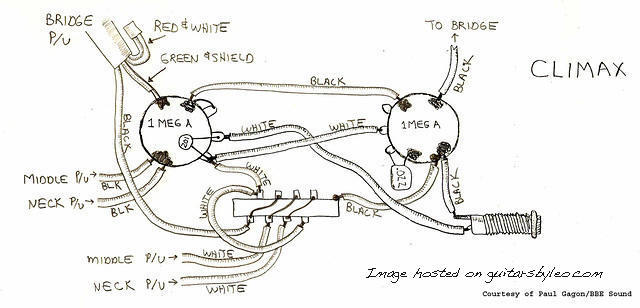 BRIDGE
P/U
RED & WHITE
GREEN & SHIELD
TO BRIDGE
BLACK
CLIMAX
BLACK
1 MEG A
201
1 MEG A
BLACK
WHITE
WHITE
WHITE
MIDDLE P/U
BLK
NECK P/U
BLK
WHITE
220
BLACK
BLACK
MIDDLE P/U
WHITE
NECK P/U
WHITE
Image hosted on guitarsbyleo.com
Courtesy of Paul Gagon/BBE Sound